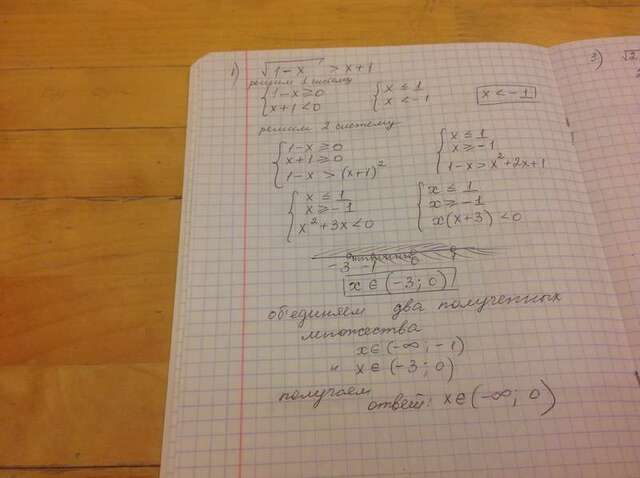 1) √1-x > x+1
решим 1 систему
{1-x ≥ 0 {x ≤ 1
x+1 < 0 x < -1 x < -1
решим 2 систему
{1-x ≥ 0 {x ≤ 1
x+1 ≥ 0 x ≥ -1
1-x > (x+1)² 1-x > x²+2x+1
{x ≤ 1 {x ≤ 1
x ≥ -1 x ≥ -1
x²+3x < 0 x(x+3) < 0
-3 -1
x ∈ (-3; 0)
объединяем два полученных
множества
x ∈ (-∞; -1)
и x ∈ (-3; 0)
получаем
ответ: x ∈ (-∞; 0)
3) √2